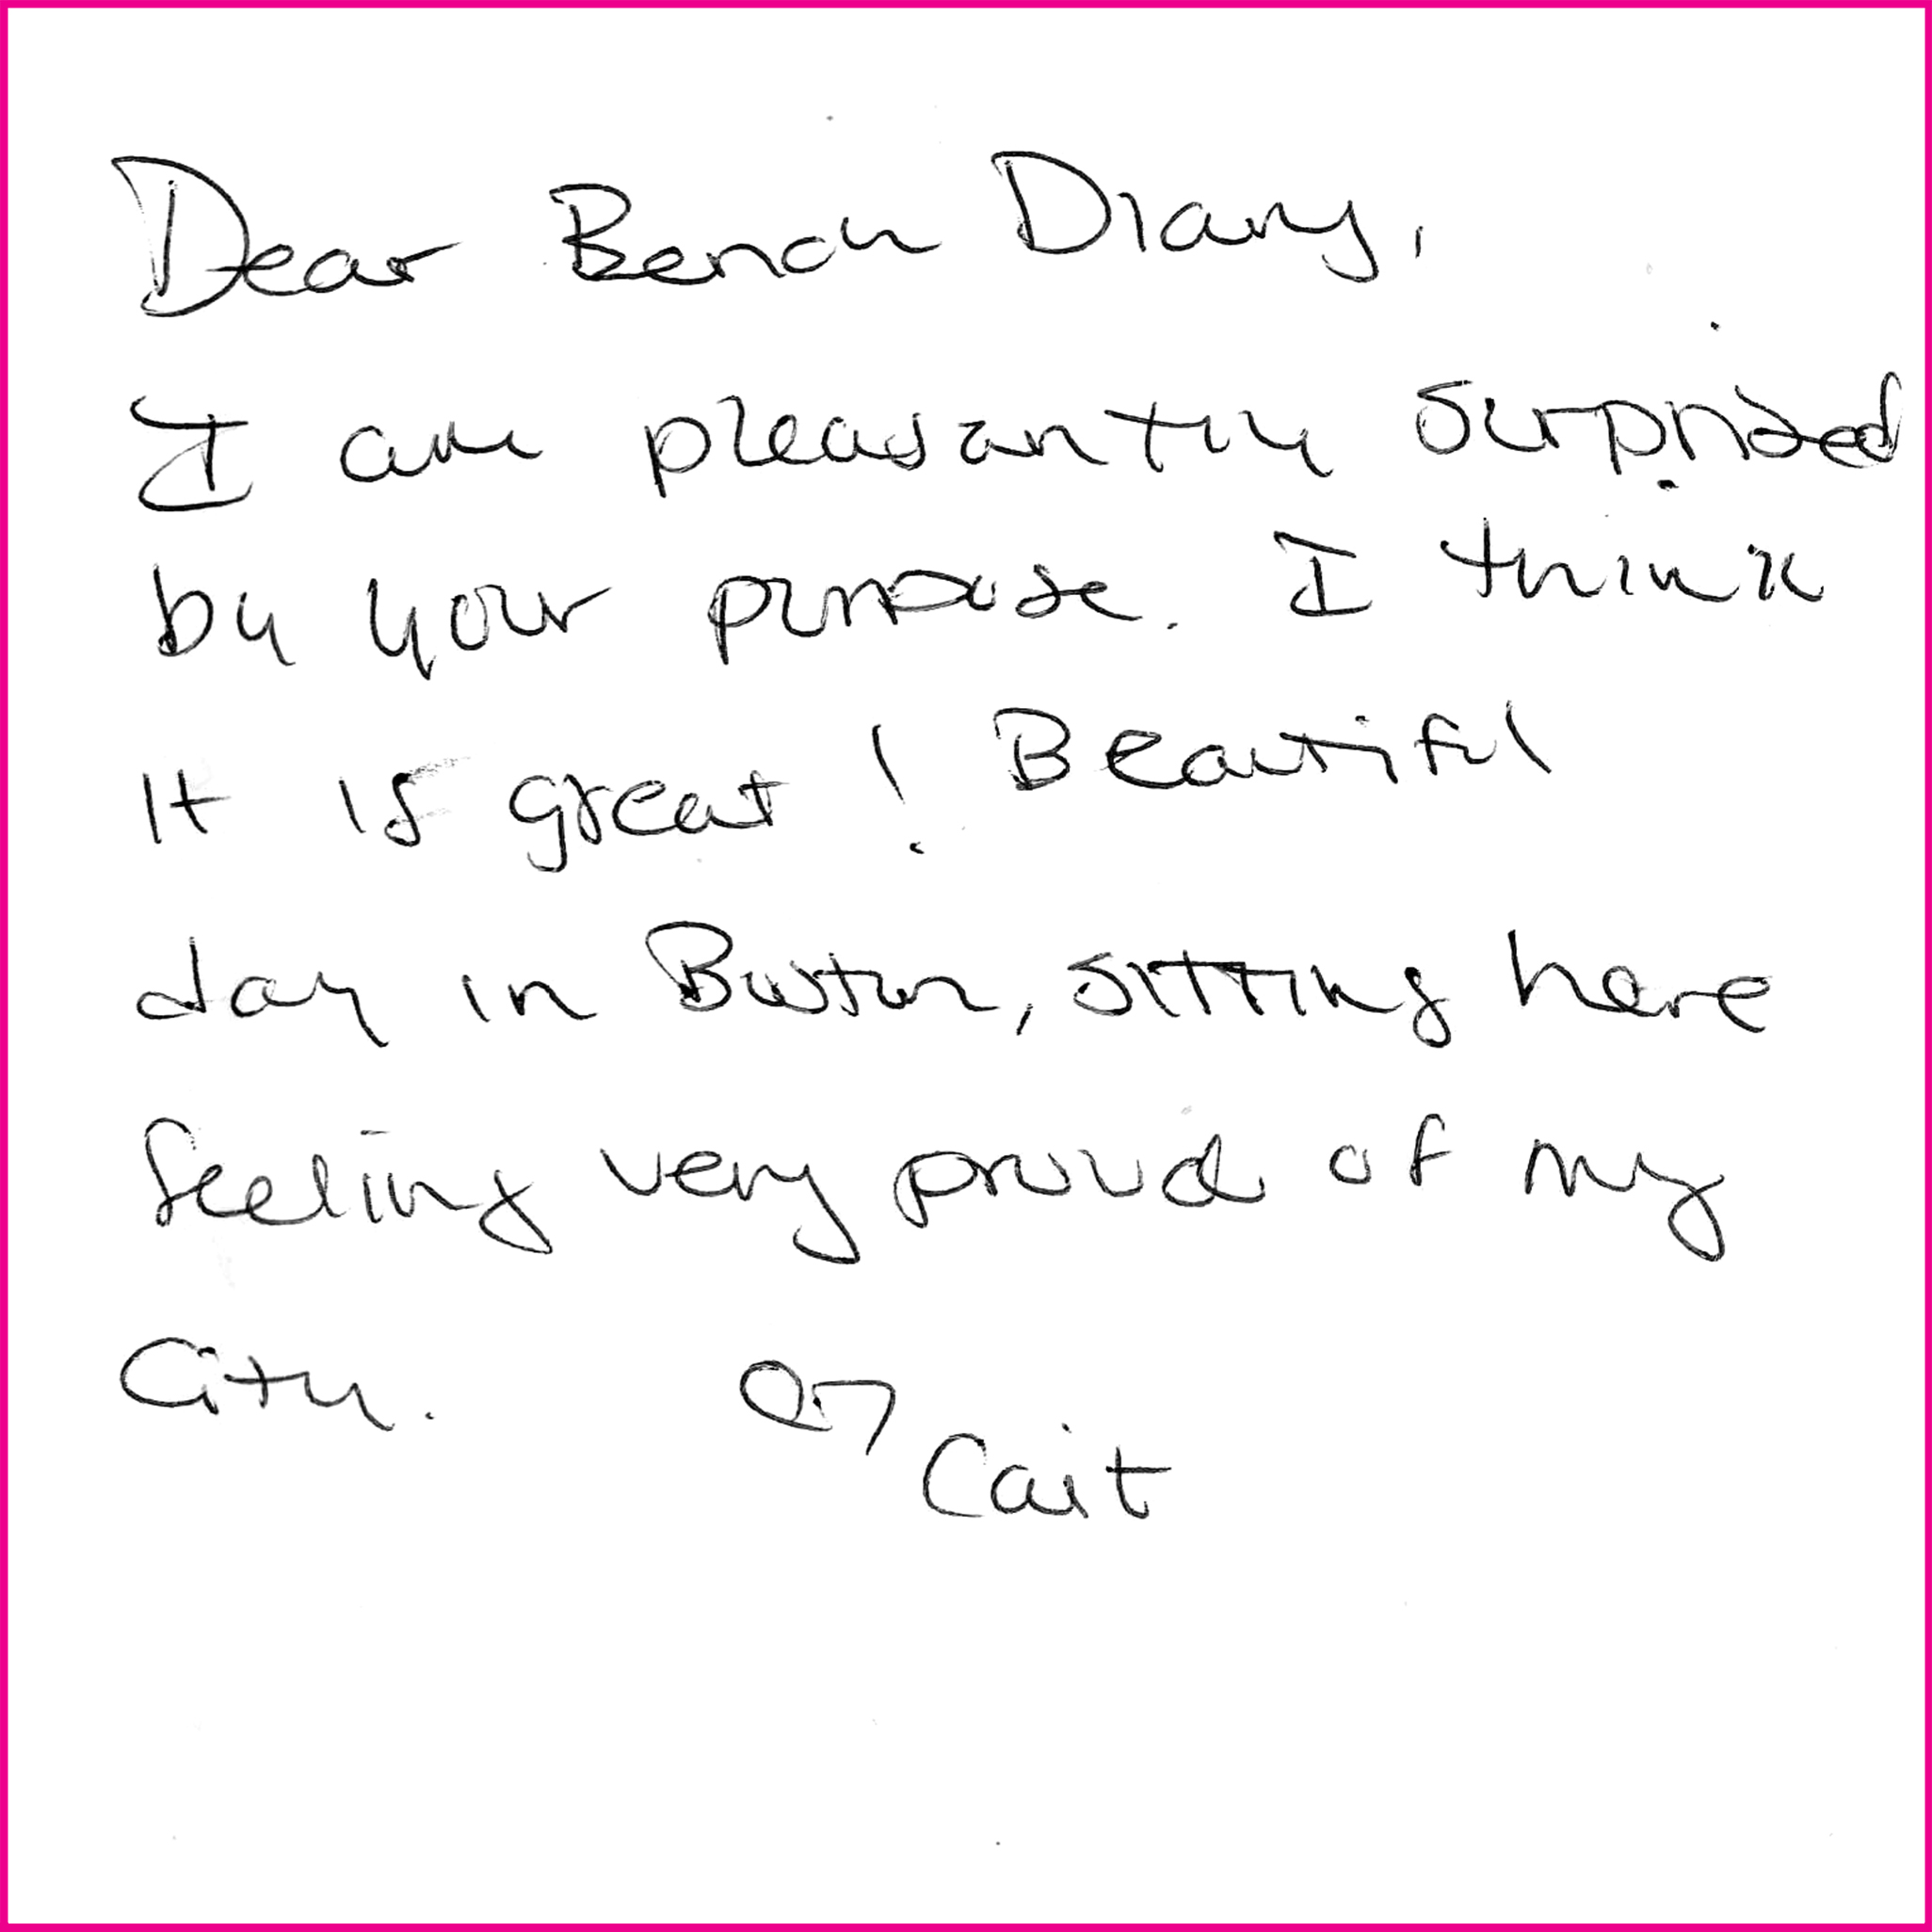 Dear Bench Diary,
I am pleasantly surprised
by your purpose. I think
It is great! Beautiful
day in Boston, sitting here
feeling very proud of my
City.
Cait